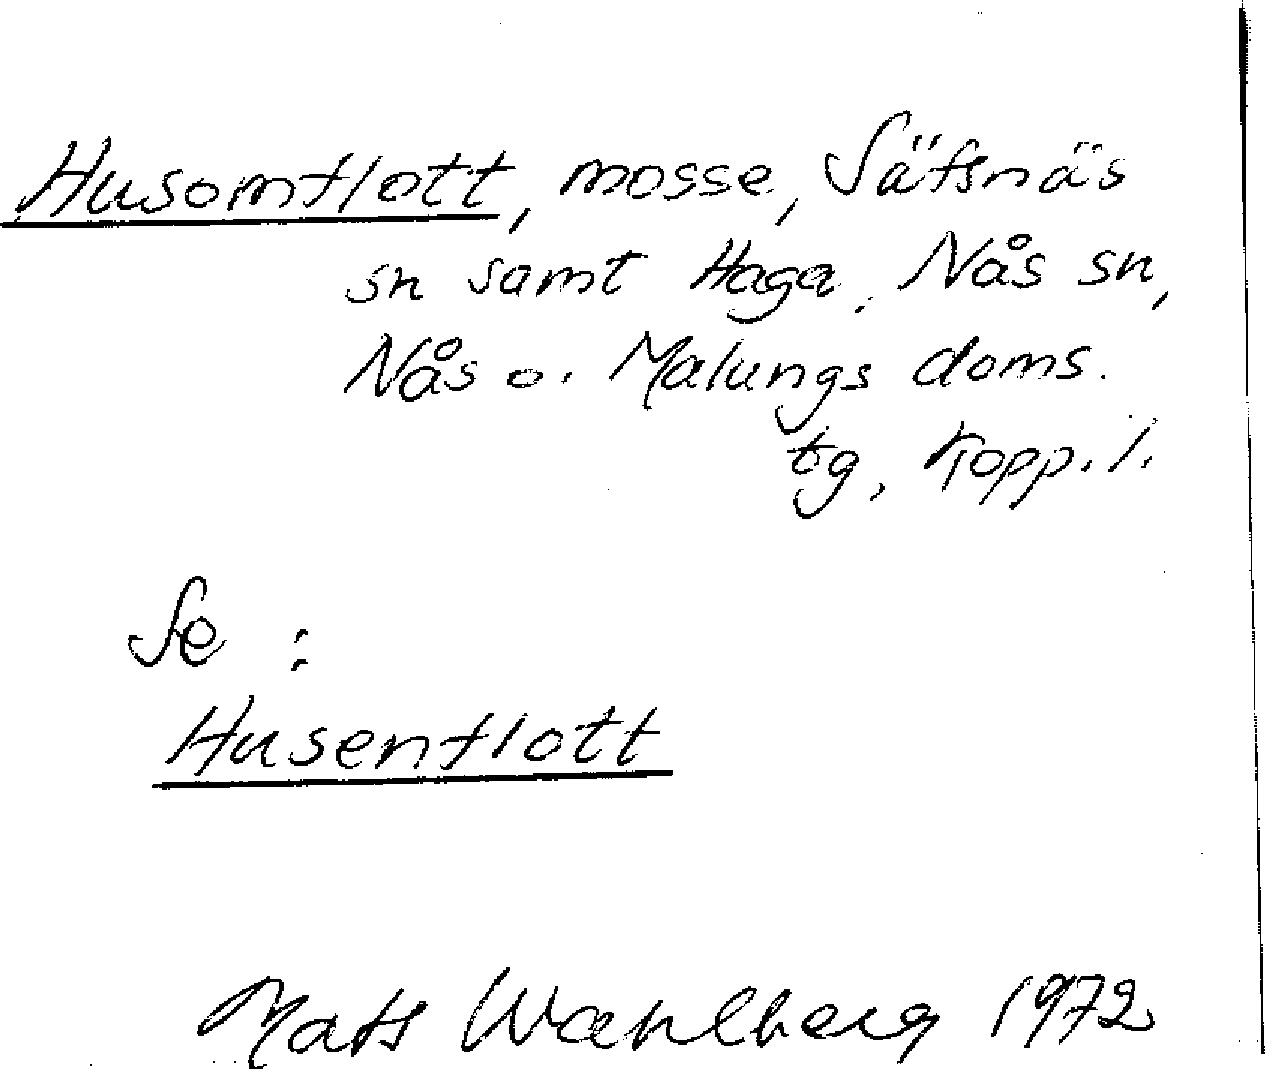 Husomflott, mosse, Säfsnäs
sn samt Haga, Nås sn,
Nås o. Malungs doms.
tg, Kopp. l.
Se :
Husenflott
Mats Wahlberg 1972